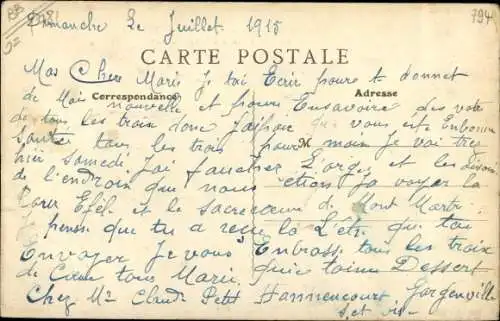 Dimanche 2e Juillet 1915
794
CARTE POSTALE
Mas Chere Marie Je tai Ecrir poure t donnet
Correspondance
Adresse
de Mais nouvelle et pour Ensavoire des votr
de tous les trois donc Jaispoir que vous ete Enbonne
Santer tous les trois pour moi Je vai tres
M
hier Samedi J'ai faucher L'orge et les
de l'endroix que nous etion Ja voyer la
tour Efel et le sacrecoeur de Mont Martre
Je pense que tu a reçu la L'etr que tau
Envoyer Je vous Enbrasse tous les troix
de Coeur tous Marie qui taime Dessert
Chez Mr Claude Petit Hannencourt Gargenville
Set oise